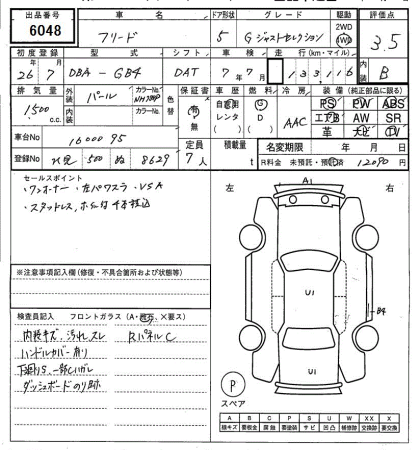 出品番号 車名 ドア形状 グレード 駆動 評価点
6048 フリード 5 Gジャストセレクション 2WD 4WD 3.5
初度登録 型式 シフト 車検 走行(km・マイル) 内装
26年7月 DBA-GB4 DAT 7年7月 133,116 B
排気量 外装 パール カラーNo. NH788P 色替 保証書 車歴 燃料 冷房 装備(純正部品に限る)
1500 c.c. 内装 カラーNo. 有 無 自家用 レンタ G D AAC PS PW ABS
エアB AW SR
革 ナビ TV
車台No 1600095 定員 7人 積載量 t 名変期限 年 月 日
登録No 500 ぬ 8629 R料金 未預託・預託済 12090円
セールスポイント
・ワンオーナー ・左パワスラ ・VSA
・スタッドレス、ホイル付4本積込
※注意事項記入欄(修復・不具合箇所および状態等)
検査員記入 フロントガラス(A・飛石・X要ス)
内装キズ、汚れ、スレ RパネルC
ハンドルカバー有り
下廻りS、一部ヒハガレ
ダッシュボードのり跡
左 右
A1
U1
B4
U1
P
スペア
A B C P S U W X XX
線キズ 要板金 腐蝕 要塗装 サビ 凹凸 補修跡 交換跡 要交換